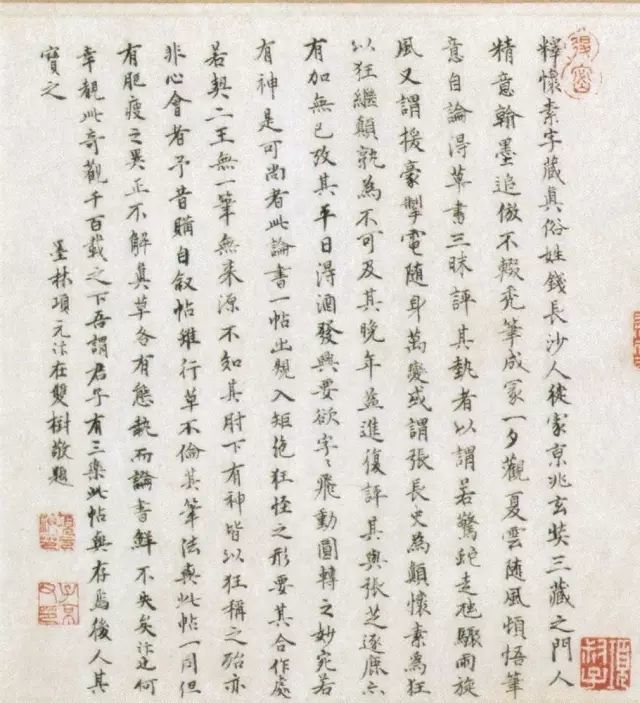 釋懷素字藏真俗姓錢長沙人徙家京兆玄奘三藏之門人
精意翰墨追倣不輟禿筆成冢一夕觀夏雲隨風頓悟筆
意自論得草書三昧評其執者以謂若驚蛇走虺驟雨旋
風又謂援豪掣電隨身萬變或謂張長史為顛懷素為狂
以狂繼顛孰為不可及其晚年益進復評其與張芝逐鹿六
有加無已攷其平日得酒發興要欲字〻飛動圓轉之妙宛若
有神是可尚者此論書一帖出規入矩絶狂怪之形要其合作處
若契二王無一筆無來源不知其肘下有神皆以狂稱之殆亦
非心會者予昔購自叙帖雖行草不倫其筆法與此帖一同但
有肥瘦之異正不解真草各有態執而論書鮮不失矣汴何
幸覩此奇觀千百載之下吾謂君子有三樂此帖與存焉後人其
寶之
墨林項元汴在雙樹敬題